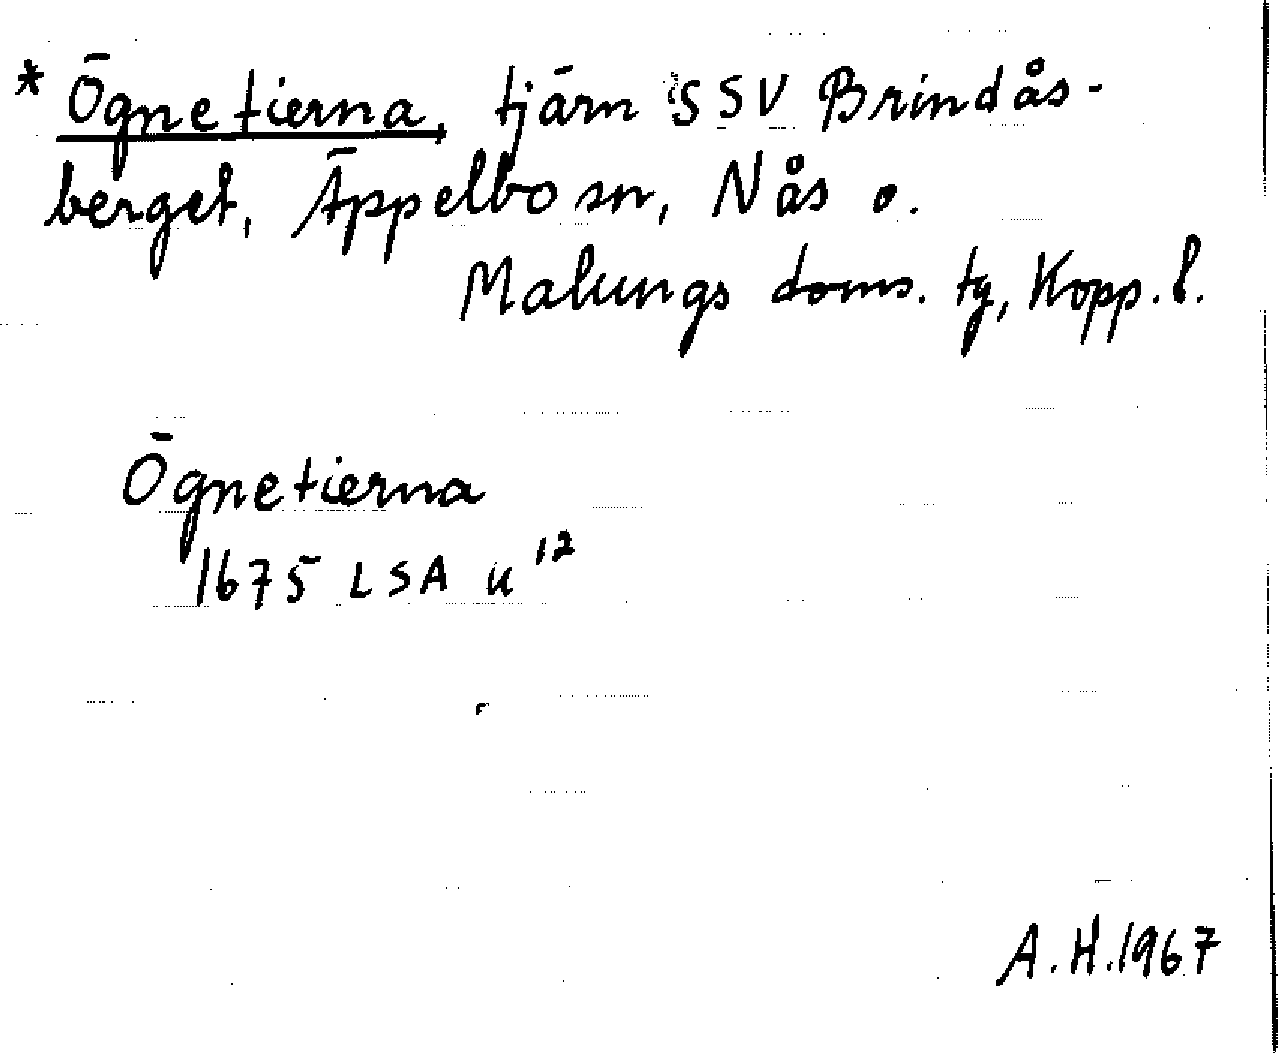 * Ögnetierna, tjärn SSV Brindås-
berget, Äppelbo sn, Nås o.
Malungs doms. tg, Kopp. l.
Ögnetierna
1675 LSA u 12
A.H. 1967